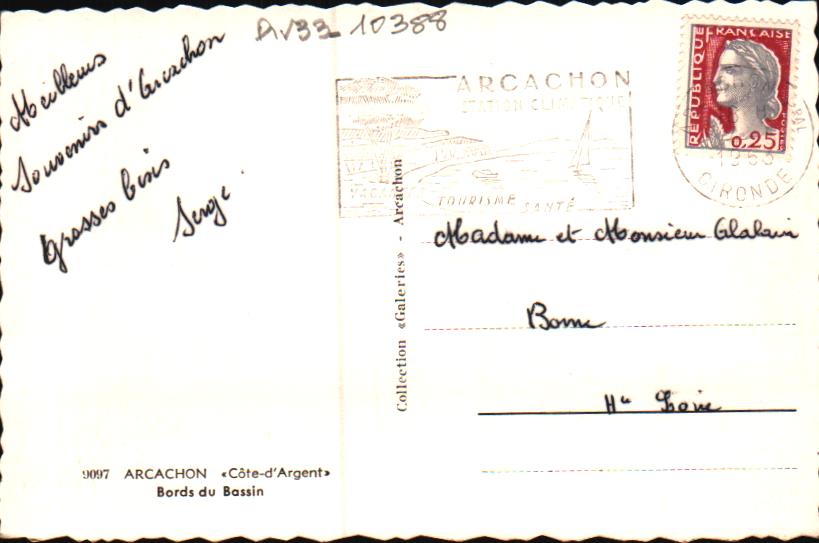 Av33 10388
Meilleurs
Souvenirs d'Arcachon
grosses bises
Serge
9097 ARCACHON «Côte-d'Argent»
Bords du Bassin
Collection «Galeries» - Arcachon
ARCACHON
STATION CLIMATIQUE
VACANCES
TOURISME
SANTÉ
RÉPUBLIQUE FRANÇAISE
0,25
1963
GIRONDE
Madame et Monsieur
Borne
Hte Loire